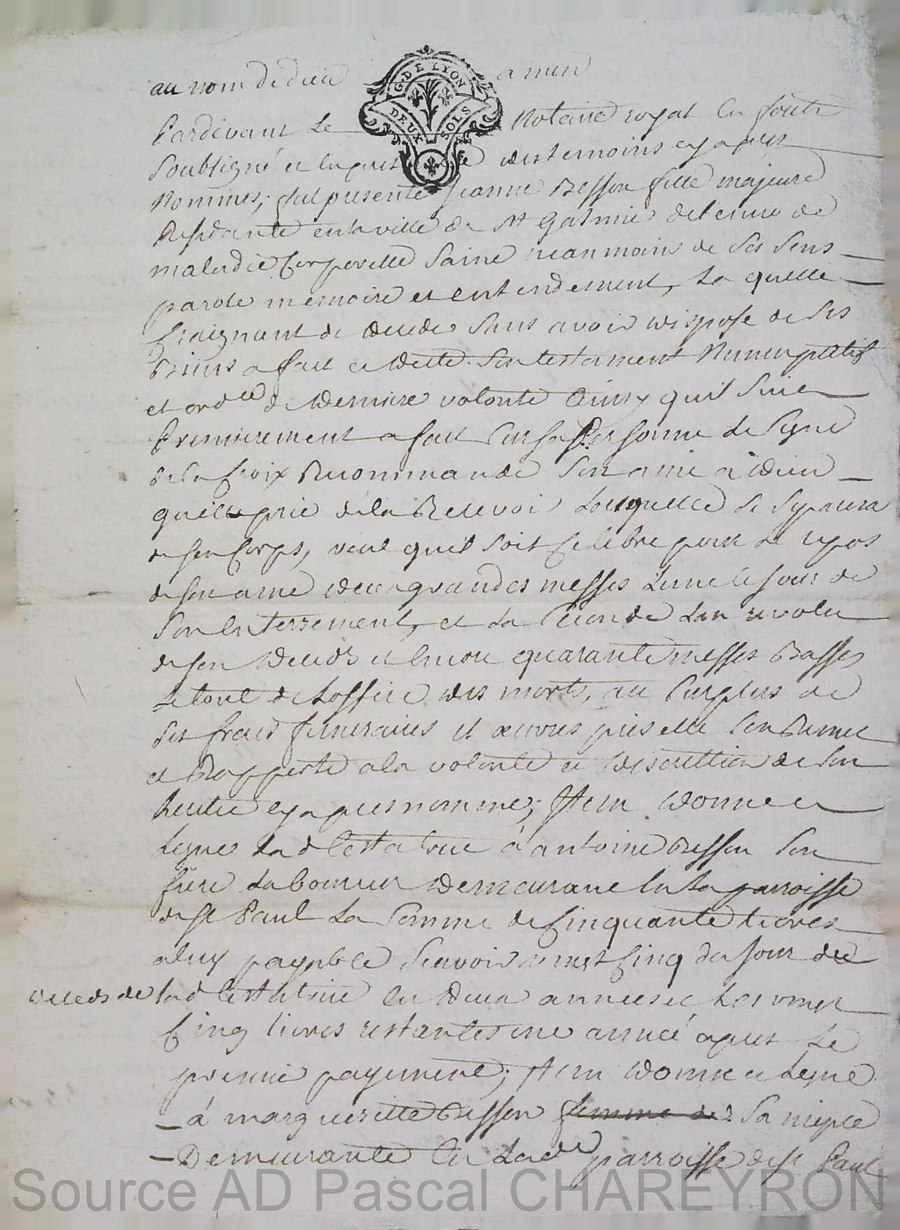 au nom de dieu amen
G. DE LYON
DEUX SOLS
Pardevant Le Notaire royal En forêts
Soubsigné et En pnce des temoins cy apres
Nommés, fut presente Jeanne Besson fille majeure
Residante en la ville de St Galmier detenue de
maladie Corporelle Saine neanmoins de Ses Sens
parole memoire et entendement, La quelle
Craignant de deceder Sans avoir disposé de Ses
Biens a fait et dicté Son testament Nuncupatif
et ordce de derniere volonté Ainsy quil Suit
Premierement a fait Sur Sa Personne Le Signe
de la Croix Recommandé Son ame à dieu
quelle prie de la Recevoir Lorsquelle Se Separera
de Son Corps, veut quil Soit Celebré pour Le repos
de Son ame deux grandes messes Lune le Jour de
Son Enterrement, et La Seconde Lan revolu
de Son decès et Encore quarante messes Basses
Le tout de Loffice des morts, au Surplus de
Ses frais funeraires et œuvres pies elle Sen Remet
et Rapporte a la volonté et discretion de Son
heritier cy apres nommé; Item donne et
Legue Lad testatrice à antoine Besson Son
frere Laboureur demeurant En La parroisse
de St Paul La Somme de Cinquante Livres
a luy payable Scavoir vingt Cinq du Jour du
deceds de Lad testatrice En deux années et Les vingt
Cinq livres restantes une année après Le
premier payement; Item donne et Legue
à margueritte Besson femme de Sa niepce
Demeurante En Lade parroisse de St Paul
Source AD Pascal CHAREYRON